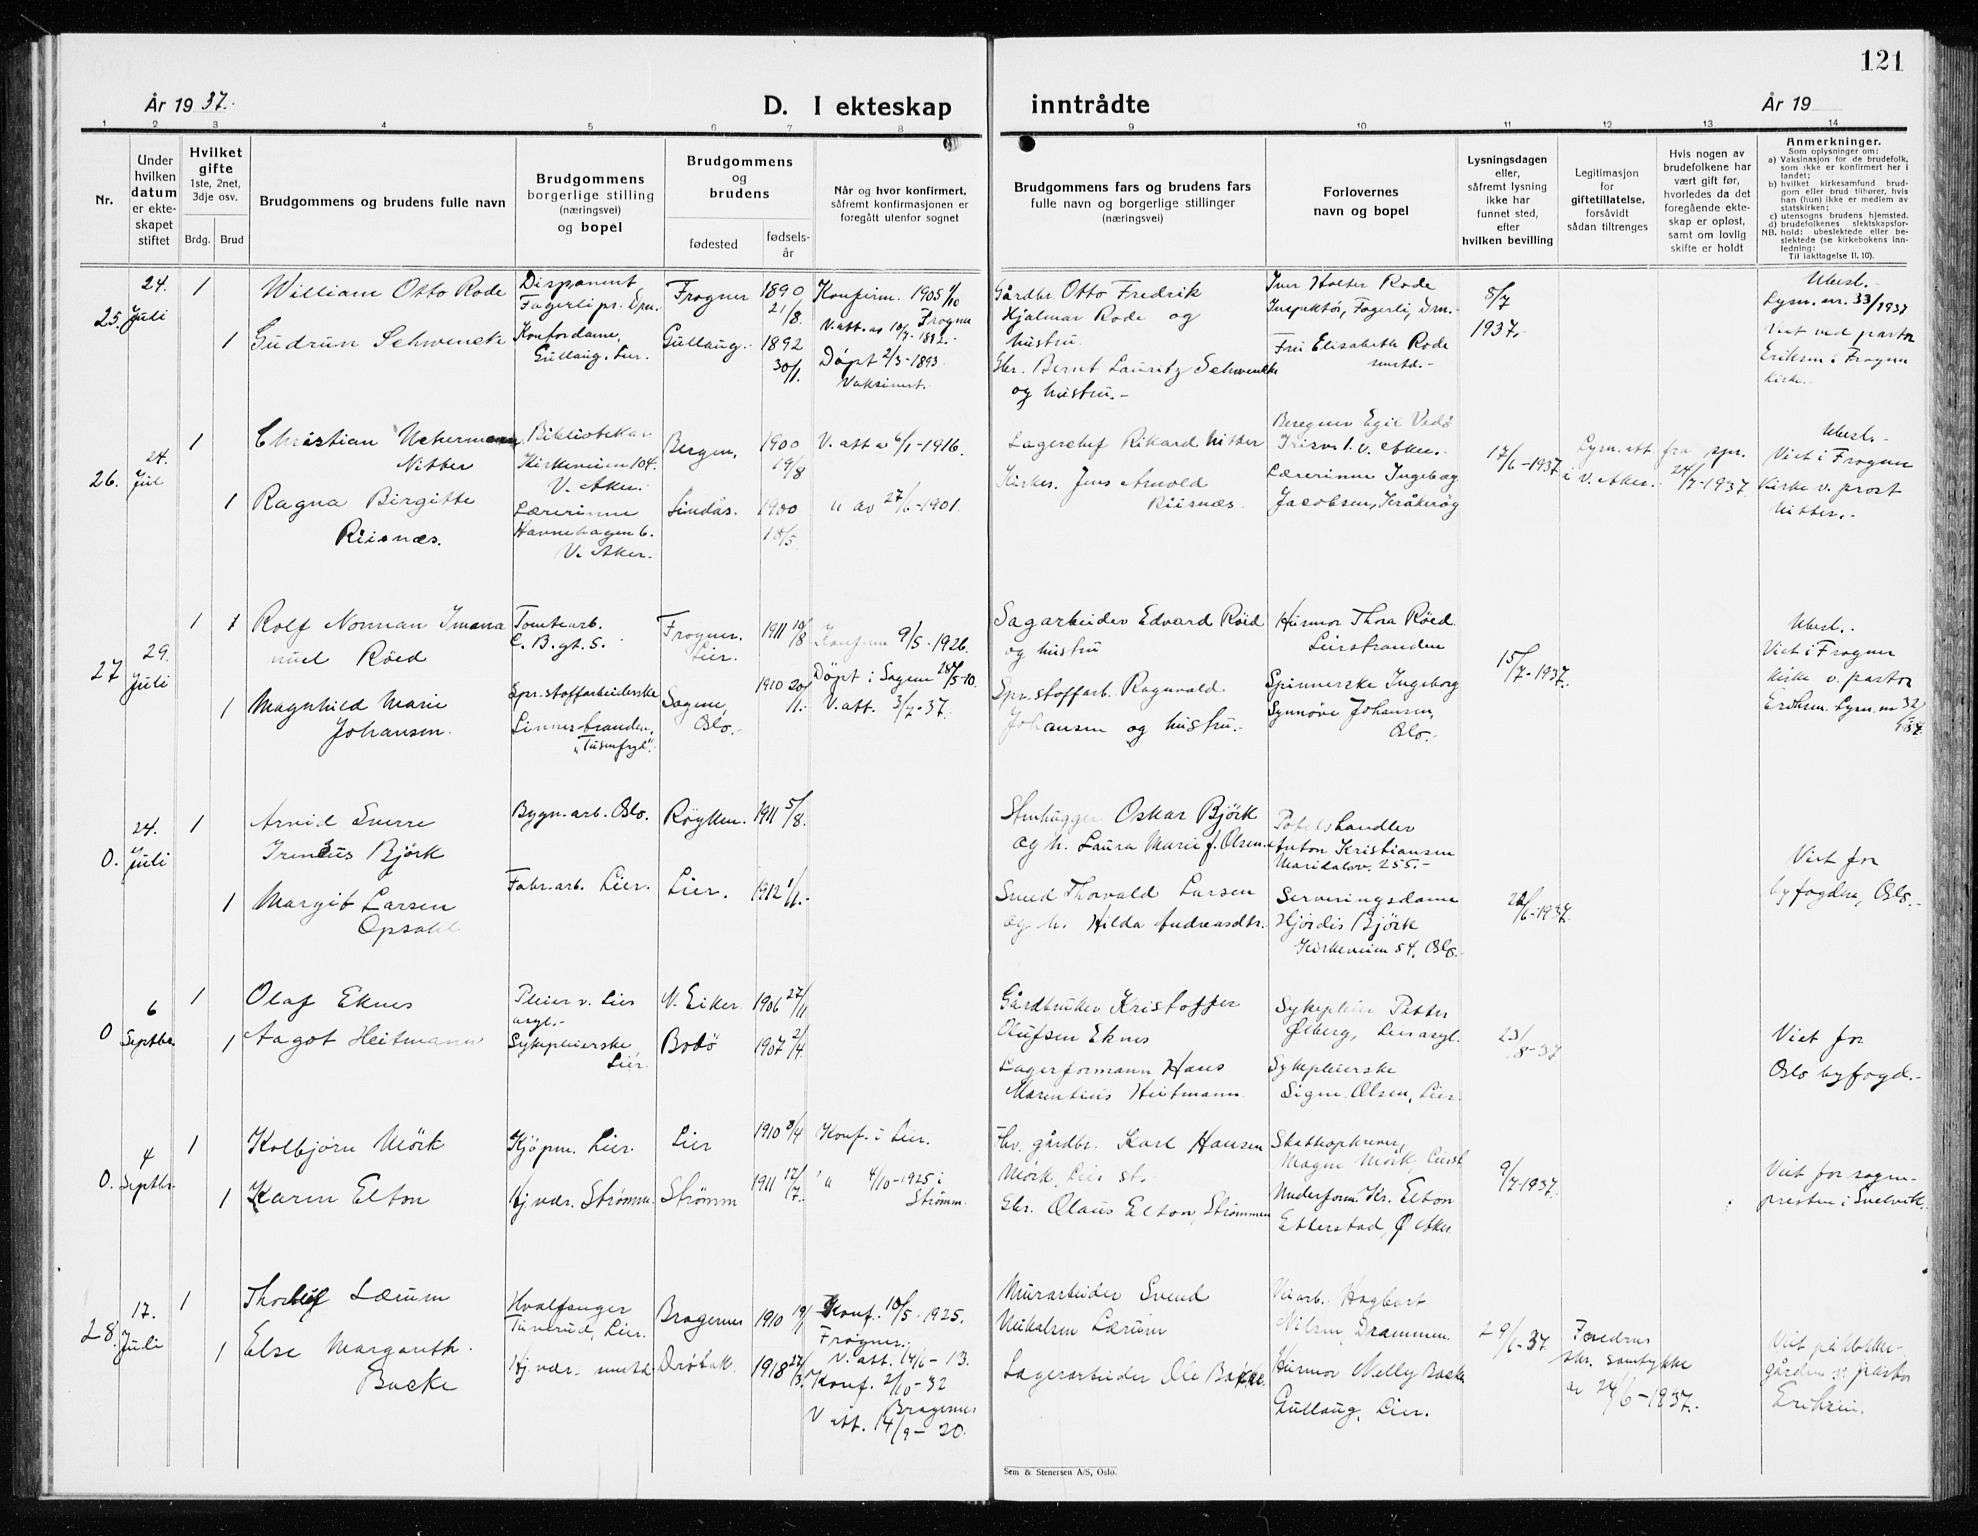 121
År 1937.
D. I ekteskap inntrådte
År 19
1 2 3 4 5 6 7 8 9 10 11 12 13 14
Nr.
Under hvilken datum er ekteskapet stiftet
Hvilket gifte
1ste, 2net, 3dje osv.
Brdg. Brud
Brudgommens og brudens fulle navn
Brudgommens borgerlige stilling (næringsvei) og bopel
Brudgommens og brudens
fødested
fødselsår
Når og hvor konfirmert, såfremt konfirmasjonen er foregått utenfor sognet
Brudgommens fars og brudens fars fulle navn og borgerlige stillinger (næringsvei)
Forlovernes navn og bopel
Lysningsdagen eller, såfremt lysning ikke har funnet sted, efter hvilken bevilling
Legitimasjon for giftetillatelse, forsåvidt sådan tiltrenges
Hvis nogen av brudefolkene har vært gift før, hvorledes da det foregående ekteskap er opløst, samt om lovlig skifte er holdt
Anmerkninger.
Som oplysninger om:
a) Vaksinasjon for de brudefolk, som ikke er konfirmert her i landet;
b) hvilket kirkesamfund brudgom eller brud tilhører, hvis han (hun) ikke er medlem av statskirken;
c) utensogns brudens hjemsted.
d) brudefolkenes slektskapsforhold: ubeslektede eller beslektede (se kirkebokens innledning:
NB.
Til iakttagelse II. 10).
25. 24. Juli
1 William Otto Rode
Disponent
Fagerli pr. Drm.
Frogner
1890 21/8.
Konfirm. 1905 1/10 Frogner
1 Gudrun Schwencke
Kontordame,
Gullaug, Lier.
Gullaug.
1892 30/11.
V. att. av 10/7-1892.-
Døpt 2/3-1893
Vaksinert.
Gårdbr. Otto Fredrik
Hjalmar Rode og
hustru.
Gbr. Bernt Lauritz Schwencke
og hustru.-
Iver Holter Rode
Inspektør, Fagerli, Drm.-
Frü Elisabeth Rode
smstd.-
5/7
1937.
Ubesl.-
Lysn. nr. 33/1937
Viet ved pastor
Eriksen i Frogner
kirke.
26. 24. Jul
1 Christian Uchermann
Nitter
Bibliotekar
Kirkeveien 104.
V. Aker.
Bergen.
1900 19/8
V. att. a 6/1-1916.
1 Ragna Birgitte
Riisnæs.
Lærerinne
Havnehagen 6.
V. Aker.
Lindås.
1900 18/5
" av 27/6-1901.
Lagerchef Rikard Nitter
Kirkes. Jens Arnold
Riisnæs.
Beregner Egil Vedø
V. Aker.
Lærerinne Ingeborg
Jacobsen, Kråkerøy
17/6-1937.
Lysn. att. fra spr.
i V. Aker. 24/7-1937.
Ubesl.-
Viet i Frogner
Kirke v. prost
Nitter.-
27 29. Juli
1 1 Rolf Norman Imma
nuel Röed
Tomtearb.
C. B. gt. 5.
Frogner.
Lier.
1911 10/8
Konfirm 9/5-1926.
1 Magnhild Marie
Johansen.
Spr. stoffarbeiderske
Linnesstranden,
"Tusenfryd".
Sagene,
Oslo.
1910 20/11.-
Døpt i Sagene 28/5-10.
V. att. 3/7-37.
Sagarbeider Edvard Röed
og hustru
Spr. stoffarb. Ragnvald
Johansen og hustru.-
Husmor Thora Röed
Lierstranden
Spinnerske Ingeborg
Synnöve Johansen,
Oslo.-
15/7-1937.
Ubesl.-
Viet i Frogner
kirke v. pastor
Eriksen. Lysn. nr 32/1937.
0. 24. Juli
1 Arvid Sverre
Ireneus Björk
Bygn. arb. Oslo.
Röyken.
1911 5/8.
1 Margit Larsen
Opsahl
Fabr. arb. Lier.
Lier.
1912 1/1.-
Stenhugger Oskar Björk
og h. Laura Marie f. Olsen.
Smed Thorvald Larsen
og h. Hilda Andreasdtr.
Potetshandler
Anton Kristiansen
Maridalsv. 255.-
Serveringsdame
Hjördis Björk
Kirkeveien 54, Oslo.-
22/6-1937.
Viet for
byfogden, Oslo.-
0 6 Septbr.
1 Olaf Eknes
Pleier v. Lier
asyl.-
N. Eiker.
1906 27/11
1 Aagot Heitmann
Sykepleierske
Lier.
Bodö
1907 2/4
Gårdbruker Kristoffer
Olufsen Eknes
Lagerformann Hans
Marentius Heitmann
Sykepleier Petter
Ölberg, Lier asyl.
Sykepleierske
Signe Olsen, Lier.
23/8-37
Viet for
Oslo byfogd.-
0. 4 Septbr.
1 Kolbjörn Mörk
Kjöpm. Lier.
Lier
1910 8/4
Konf. i Lier.
1 Karin Elton
Hj. vær. Strömm.
Strömm
1911 17/7.
" 4/10-1925 i
Strömm.
Fhv. gårdbr. Karl Hansen
Mörk, Lier st.
Gbr. Olaus Elton, Strömmen
Skatteopkrever,
Magne Mörk, Lierst.
Underform. Kr. Elton
Etterstad, Ø. Aker.
9/7-1937.
Viet for sogne-
presten i Svelvik.
28. 17. Juli
1 Thorleif Lærum
Hvalfanger
Tuverud, Lier.
Bragernes
1910 19/
Konf. 10/5-1925.
Frogner.
V. att. 14/6-13.
1 Else Margareth
Backe
Hj. vær. smstd.
Dröbak.
1918 27/3.
Konf. 2/10-32
Bragernes
V att. 14/9-20.
Murarbeider Svend
Nikolsen Lærum
Lagerarbeider Ole Backe.
Hagbart
Nilsen, Drammen.
Husmor Nelly Backe
Gullaug, Lier.
29/6-37
Foreldres
skr. samtykke
av 24/6-1937.
Viet på Bække-
gården v. pastor
Eriksen.
Sem & Stenersen A/S, Oslo.